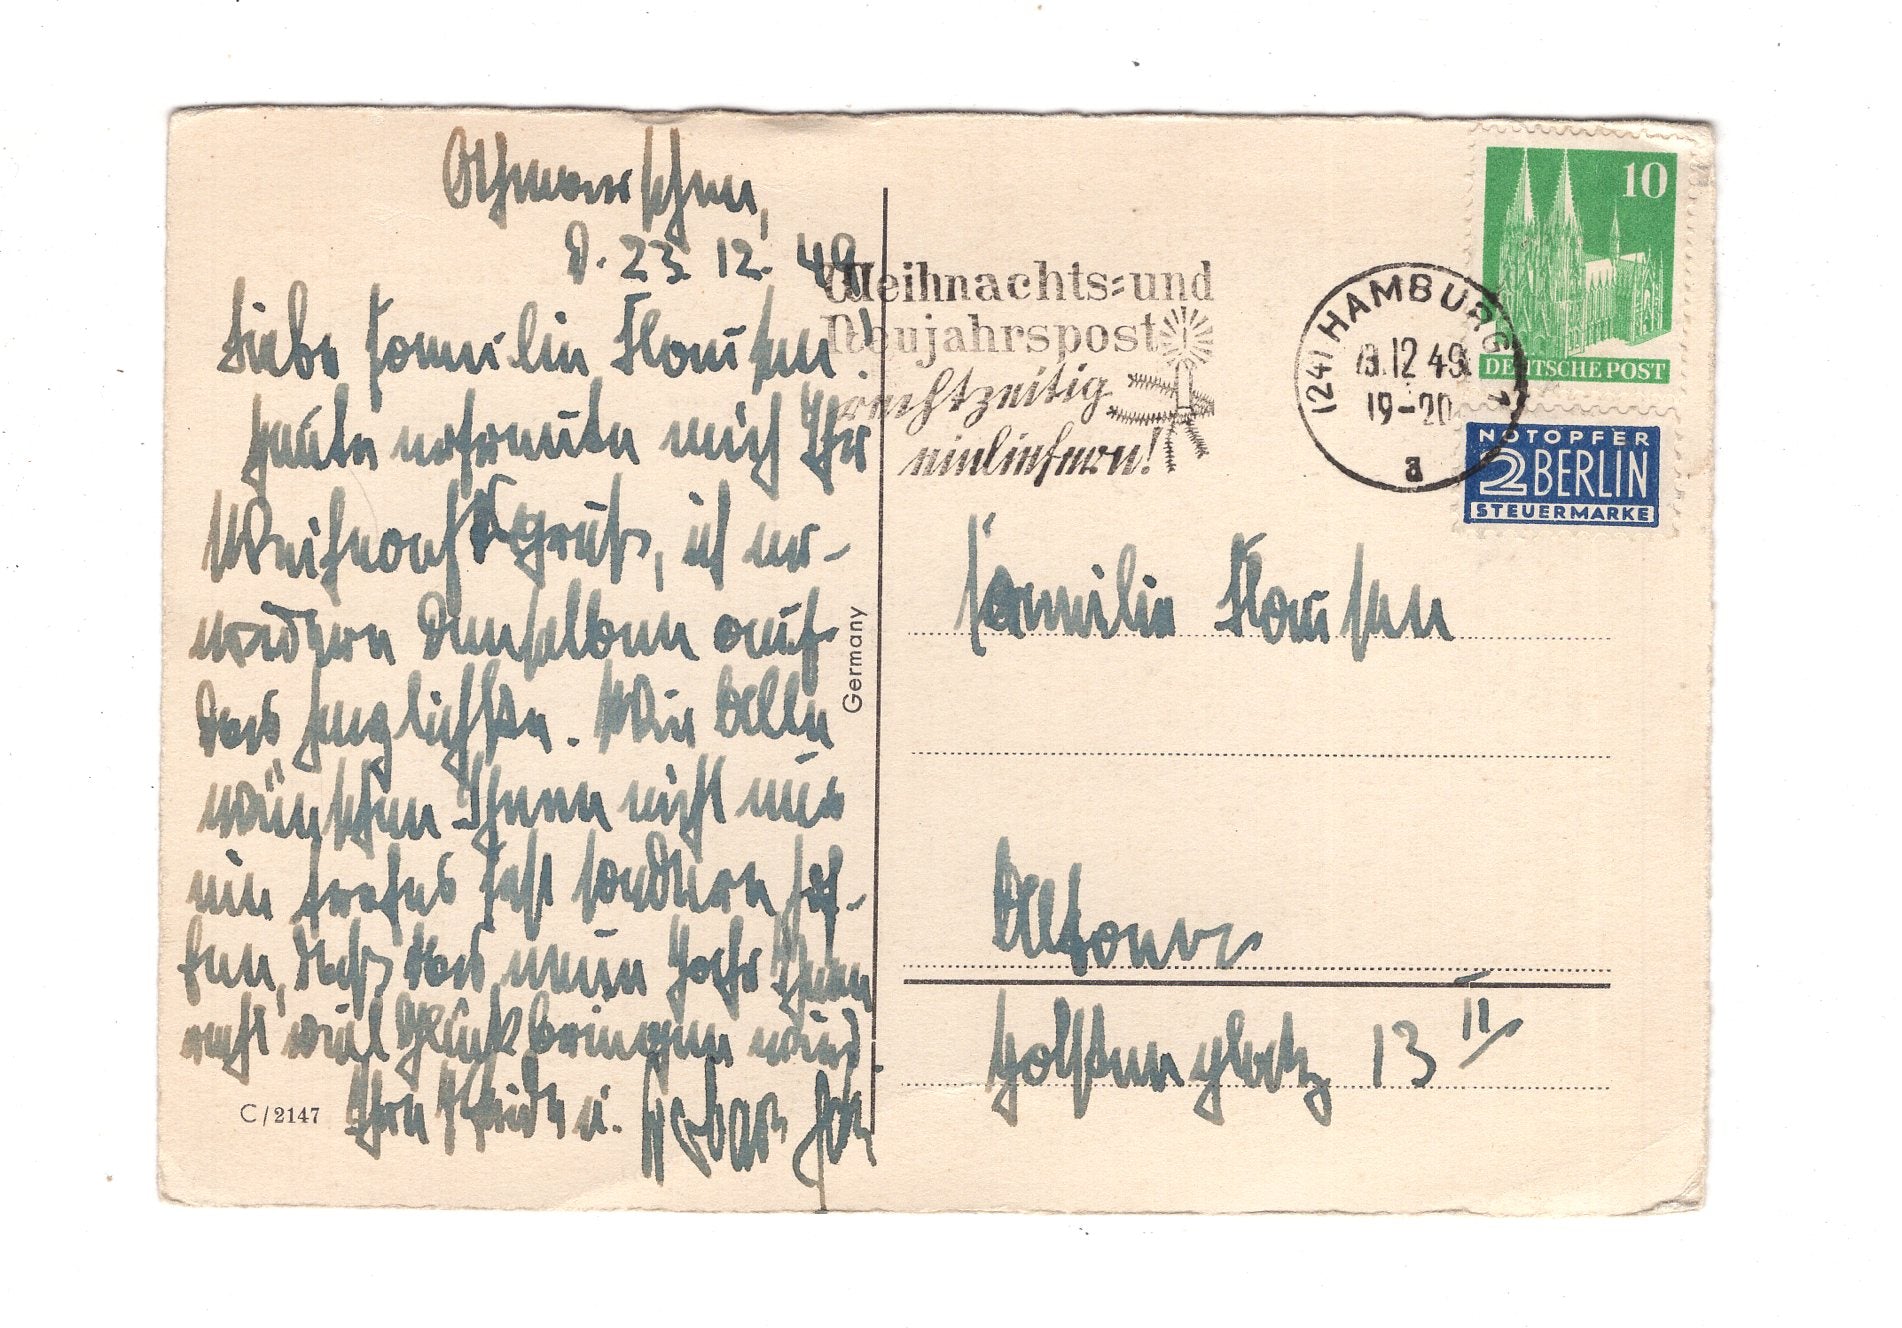 Othmarschen,
d. 23. 12. 49
Liebe Familie Klausen!
Heute erfreute mich Ihr
Weihnachtsgruß, ich er-
widere denselben auf
das herzlichste. Wir Alle
wünschen Ihnen nicht nur
ein frohes Fest sondern hof-
fen, daß das neue Jahr Ihnen
recht viel Glück bringen wird.
Ihre u.
C/2147
Germany
Weihnachts- und
Neujahrspost
rechtzeitig
einliefern!
(24) HAMBURG 1
12 49
19-20
a
10
DEUTSCHE POST
NOTOPFER
2 BERLIN
STEUERMARKE
Familie Klausen
Altona
Holstenplatz 13 II